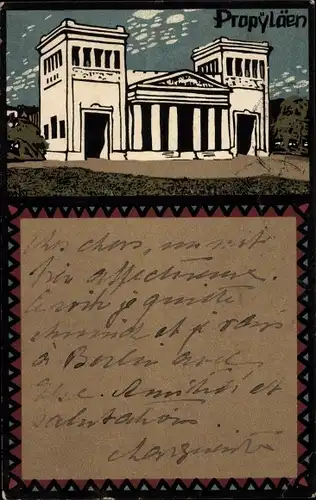 Propyläen
Mes chers, un mot
bien affectueux.
Ce soir je quitte
et je vais
à Berlin avec
Else. Amitiés et
salutations